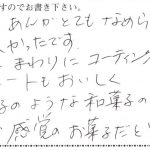 すのでお書き下さい。
あんがとてもなめら
かったです。
まわりに コーティング
ートもおいしく
子のような和菓子の
感覚のお菓子だと